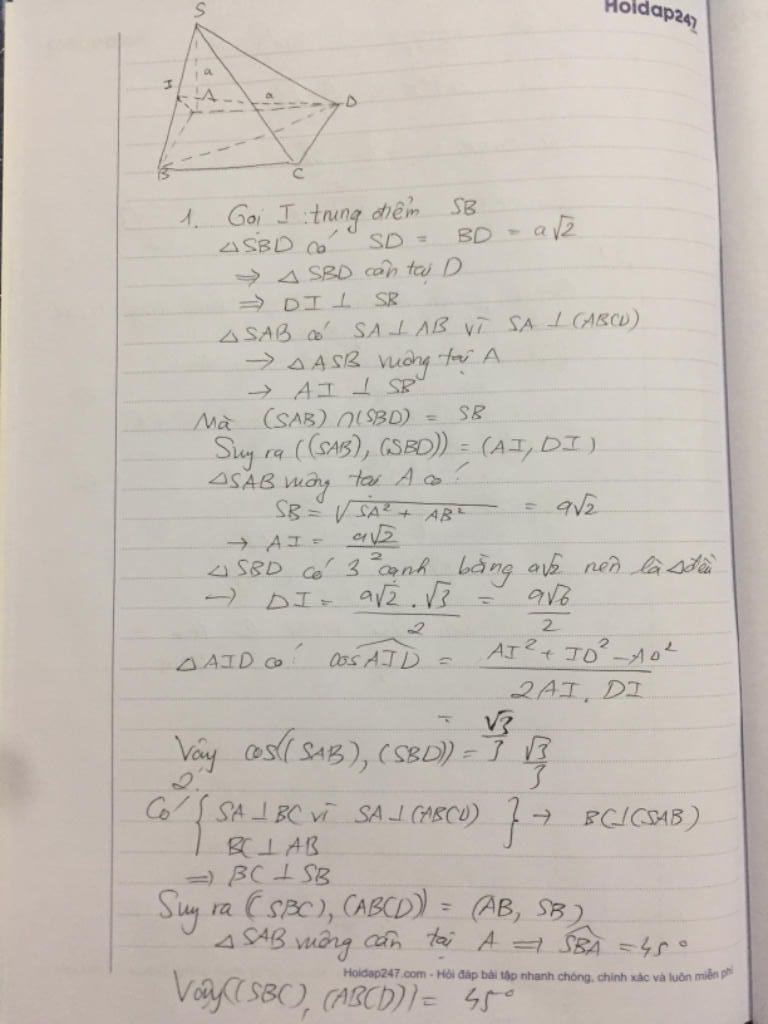 Hoidap247
S
a
I
A
a
D
B
C
1. Gọi I : trung điểm SB
△SBD có SD = BD = a√2
⇒ △ SBD cân tại D
⇒ DI ⊥ SB
△SAB có SA ⊥ AB vì SA ⊥ (ABCD)
→ △ASB vuông tại A
→ AI ⊥ SB
Mà (SAB) ∩ (SBD) = SB
Suy ra ((SAB), (SBD)) = (AI, DI)
△SAB vuông tại A có:
SB = √(SA² + AB²) = a√2
→ AI = a√2/2
△SBD có 3 cạnh bằng a√2 nên là △đều
→ DI = a√2.√3/2 = a√6/2
△AID có: cos AID = (AI² + ID² - AD²)/(2AI. DI)
= √3/3
Vậy cos((SAB), (SBD)) = √3/3
2.
Có { SA ⊥ BC vì SA ⊥ (ABCD) } → BC ⊥ (SAB)
BC ⊥ AB
⇒ BC ⊥ SB
Suy ra ((SBC), (ABCD)) = (AB, SB)
△SAB vuông cân tại A ⇒ SBA = 45°
Hoidap247.com - Hỏi đáp bài tập nhanh chóng, chính xác và luôn miễn phí
Vậy((SBC), (ABCD)) = 45°